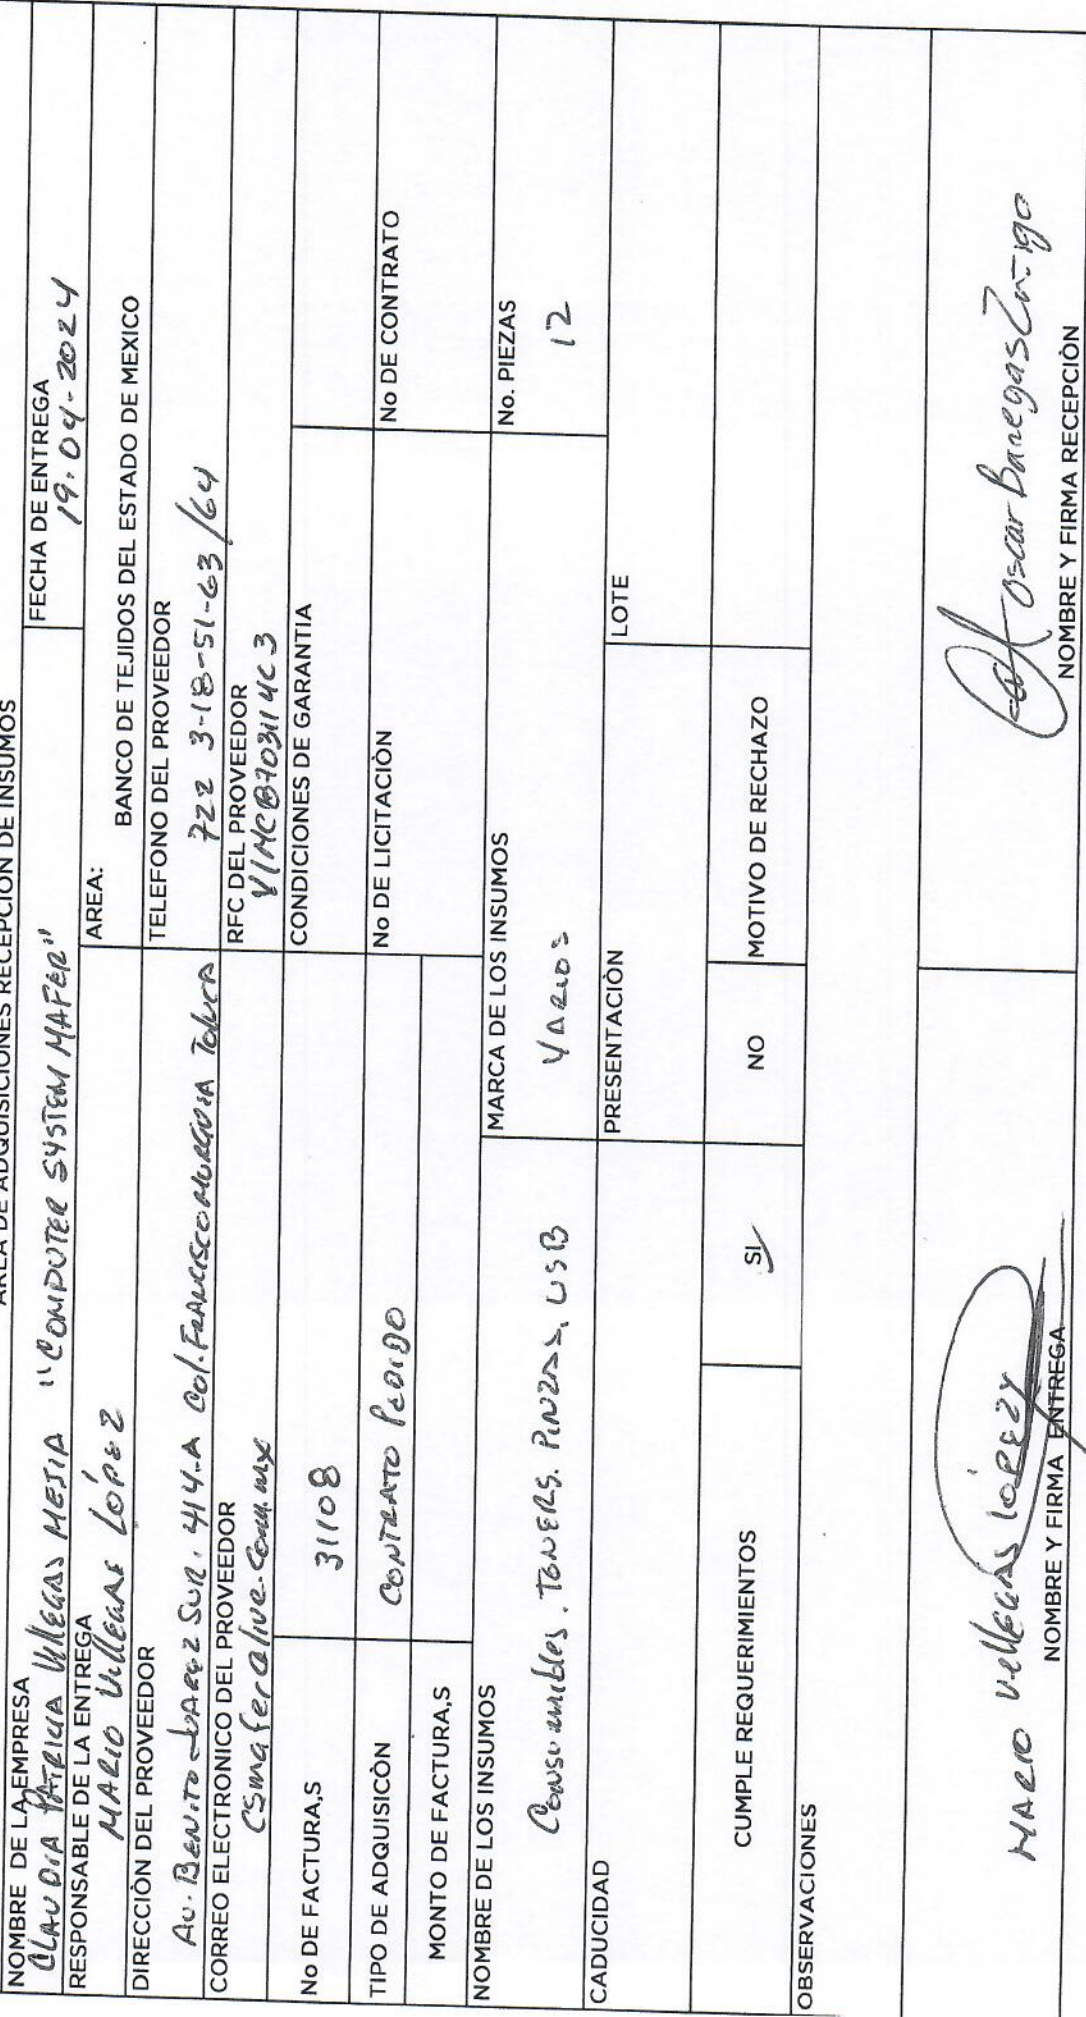 ÁREA DE ADQUISICIONES RECEPCIÓN DE INSUMOS
NOMBRE DE LA EMPRESA
CLAUDIA PATRICIA VILLEGAS MEJIA "COMPUTER SYSTEM MAFER"
FECHA DE ENTREGA
19-04-2024
RESPONSABLE DE LA ENTREGA
MARIO VILLEGAS LÓPEZ
AREA:
BANCO DE TEJIDOS DEL ESTADO DE MEXICO
DIRECCIÒN DEL PROVEEDOR
AV. BENITO JUAREZ SUR. 414-A Col. FRANCISCO MURGUIA Toluca
TELEFONO DEL PROVEEDOR
722 3-18-51-63/64
CORREO ELECTRONICO DEL PROVEEDOR
CSmafer@live.com.mx
RFC DEL PROVEEDOR
VIMC8703114C3
No DE FACTURA,S
31108
CONDICIONES DE GARANTIA
TIPO DE ADQUISICÒN
CONTRATO PEDIDO
No DE LICITACIÒN
No DE CONTRATO
MONTO DE FACTURA,S
NOMBRE DE LOS INSUMOS
Consumibles. TONERS. PINZAS, USB
MARCA DE LOS INSUMOS
VARIOS
No. PIEZAS
12
CADUCIDAD
PRESENTACIÒN
LOTE
CUMPLE REQUERIMIENTOS
SI
NO
MOTIVO DE RECHAZO
OBSERVACIONES
MARIO VILLEGAS LÓPEZ
NOMBRE Y FIRMA ENTREGA
Oscar Banegas Zuñigo
NOMBRE Y FIRMA RECEPCIÒN